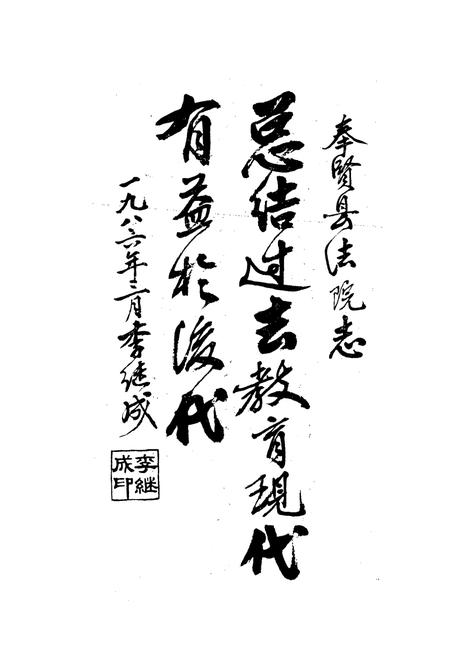 奉贤县法院志
总结过去教育现代
有益於後代
一九八六年三月李继成
李继成印